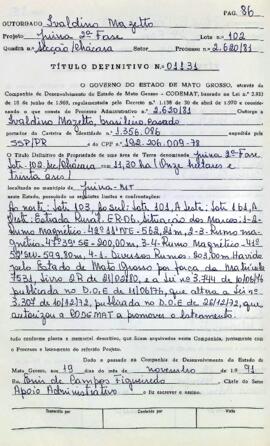 PAG. 86
Outorgado Ivaldino Mazetto
Projeto Juina 2ª Fase Lote nº 102
Quadra nº Secção/chácara Setor Processo nº 2.620/81
TÍTULO DEFINITIVO N.º 01131
O GOVERNO DO ESTADO DE MATO GROSSO, através da
Companhia de Desenvolvimento do Estado de Mato Grosso - CODEMAT, baseado na Lei n.º
18 de junho de 1969, regulamentada pelo Decreto n.º 1.138 de 30 de abril de 1970 e conside-
rando o que consta do Processo n.º 2.620/81 Outorga a
Ivaldino Mazetto, brasileiro, casado
portador da Carteira de Identidade n.º 1.356.086 expedida pela
SSP/PR e do CPF n.º 192.206.009-78
O Título Definitivo de Propriedade de uma área de Terra denominada Juina 2ª Fase
Lote-102 Secç/chácara com 11,30 ha (Onze hectares e
trinta ares)
localizada no município de Juina-MT
neste Estado, possuindo os seguintes limites e confrontações:
Ao norte: lote 103, ao sul: lote 101, A Leste: lote 161, A
Oeste: Estrada Rural ER-06. Situação dos Marcos: 1-2
Rumo Magnético
2-3 Rumo ma-
gnético 200,00m, 3-4 Rumo Magnético
4-1 Diversos Rumos. Havido
pelo Estado de Mato Grosso por força da Matrícula
e a Lei nº 3.744 de 10/06/76
publicada no D.O.E de 11/06/76, que altera a Lei nº
3.307 de 10/12/72, publicada no D.O.E de 26/12/72, que
autorizou a CODEMAT a promover o loteamento.
tudo conforme planta e memorial descritivo, que ficam arquivados nesta Companhia, juntamente com
o Processo e loteamento do referido Projeto.
Dado e passado na Companhia de Desenvolvimento do Estado de
Mato Grosso, aos 19 dias do mês de novembro de 1991
Eu, de Campos Figueiredo, Chefe do Setor
Apoio Administrativo o fiz escrever e assino.
Transcrito por
Conferido por
Visto